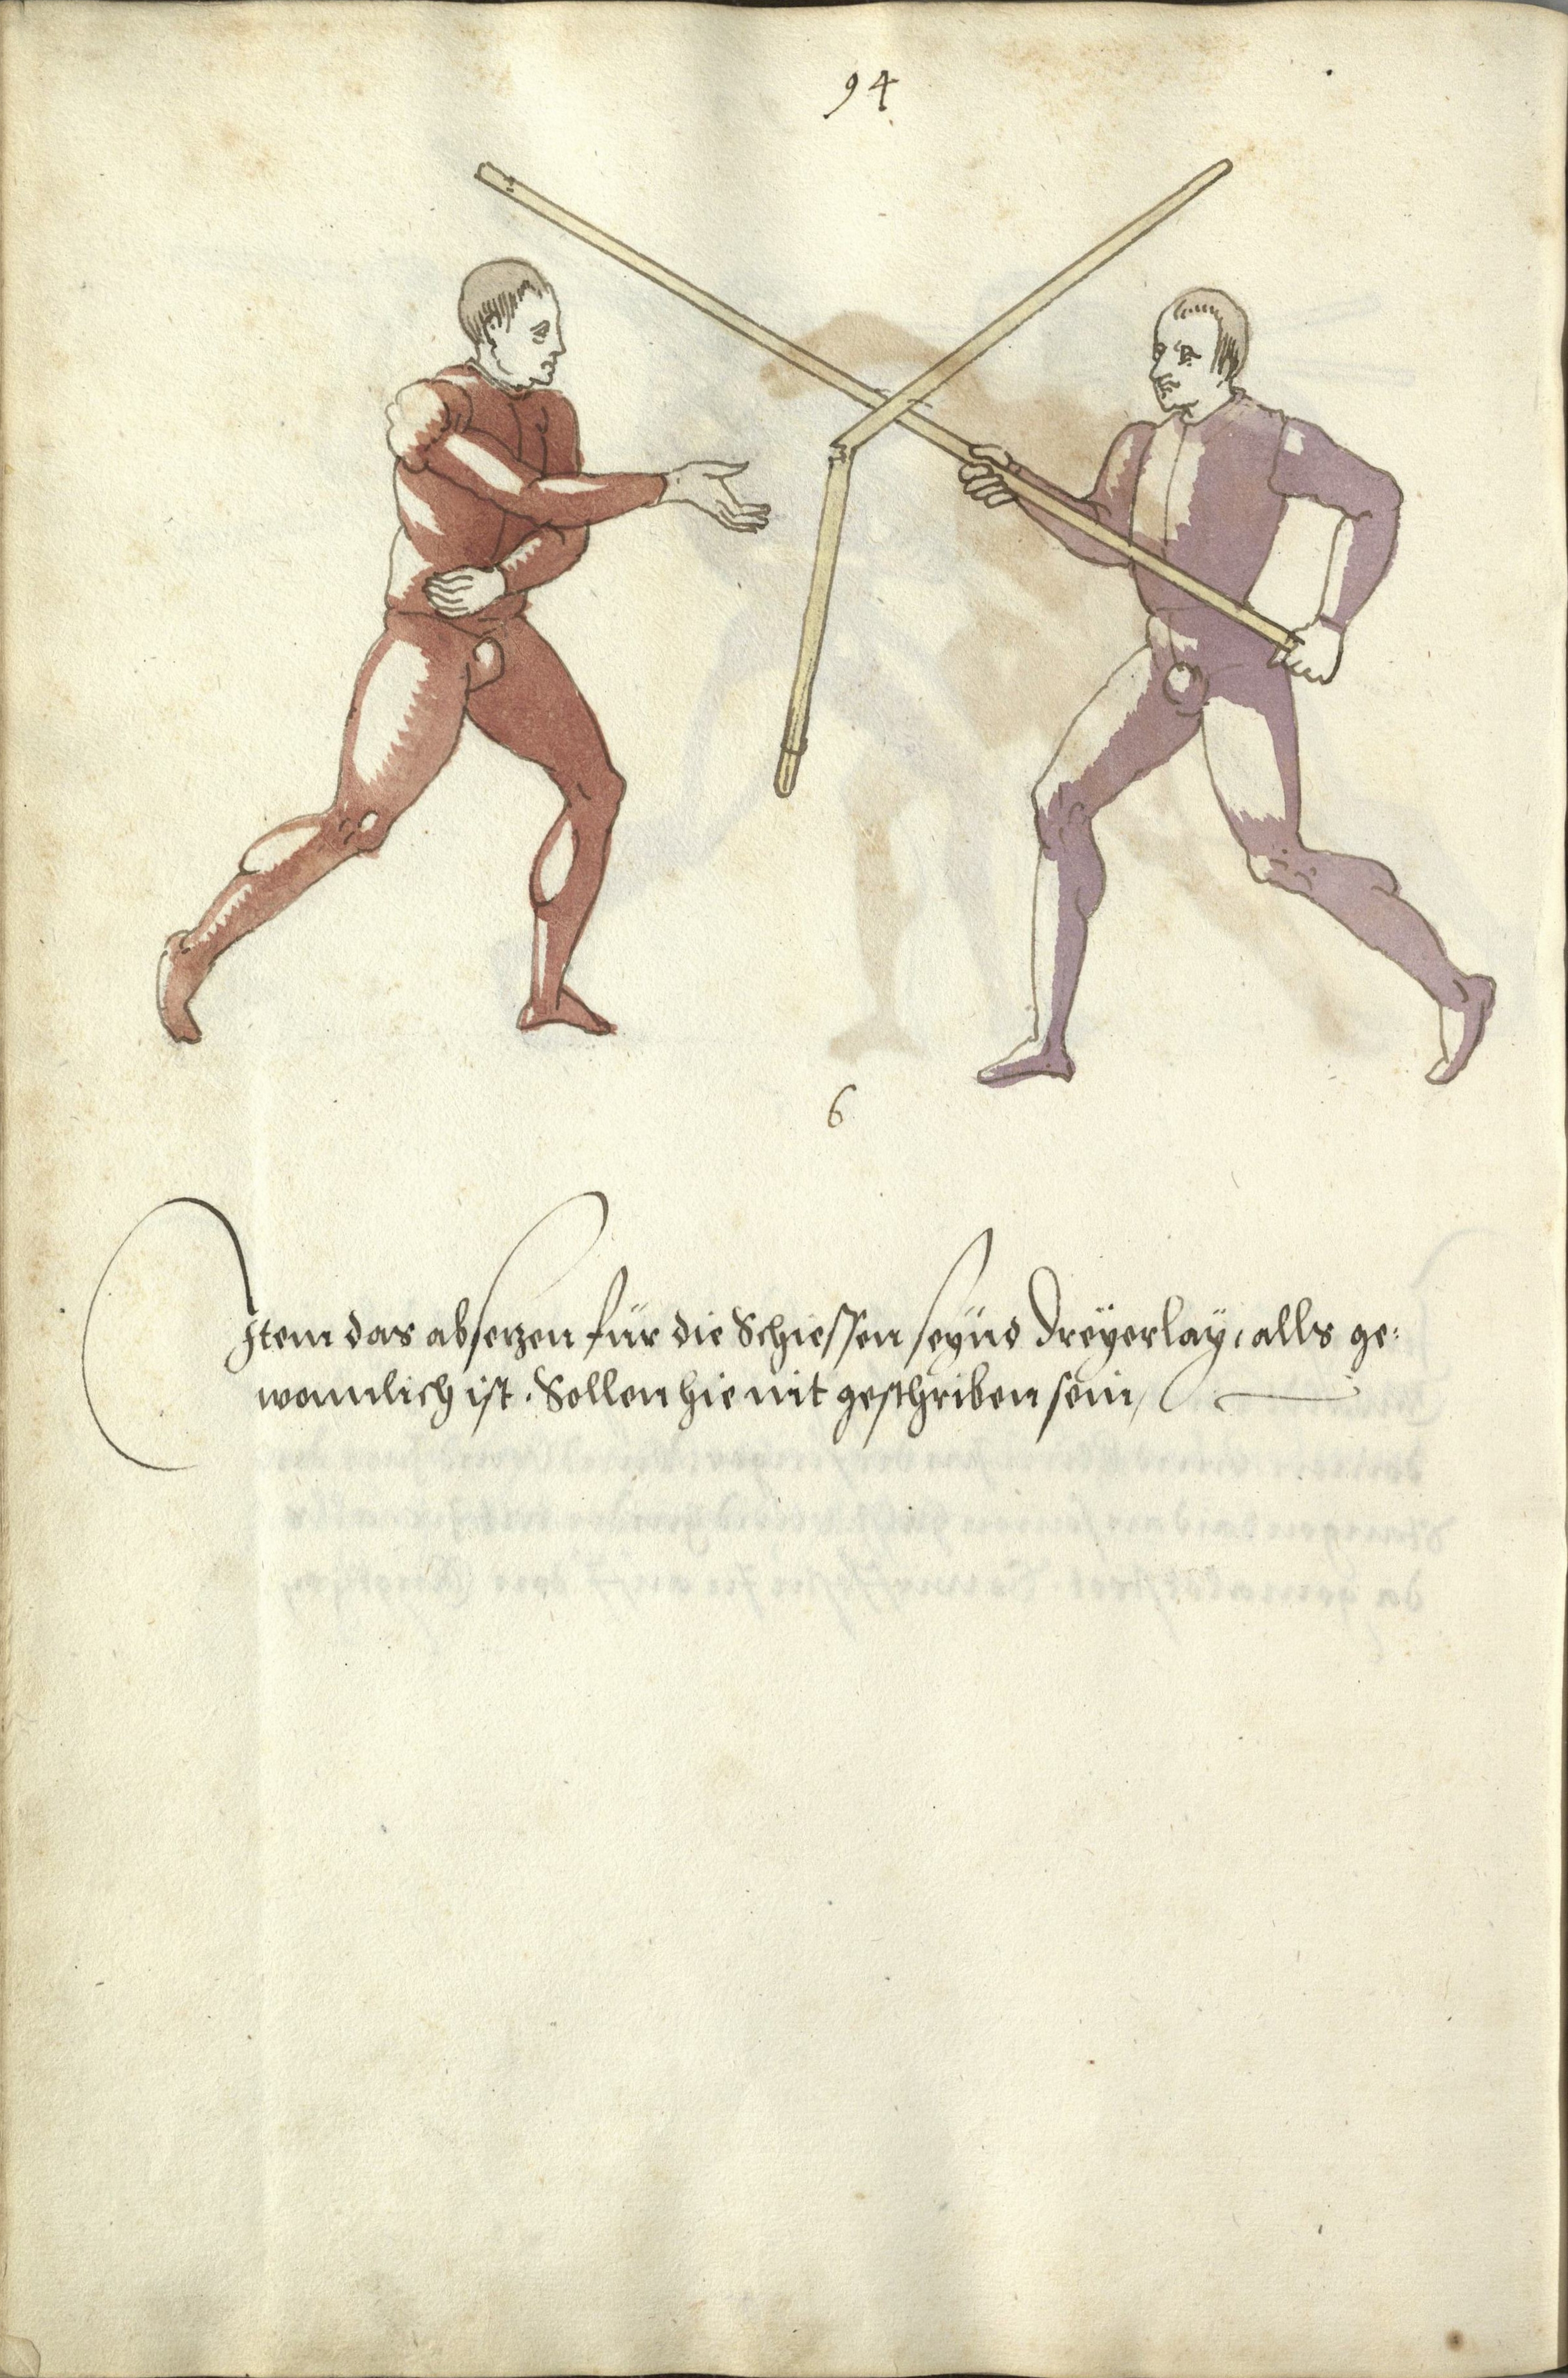 94
6
Item das absetzen für die Schiessen seÿnd Dreÿerlaÿ, alls ge:
womlich ist. Sollen hie mit geschriben sein,